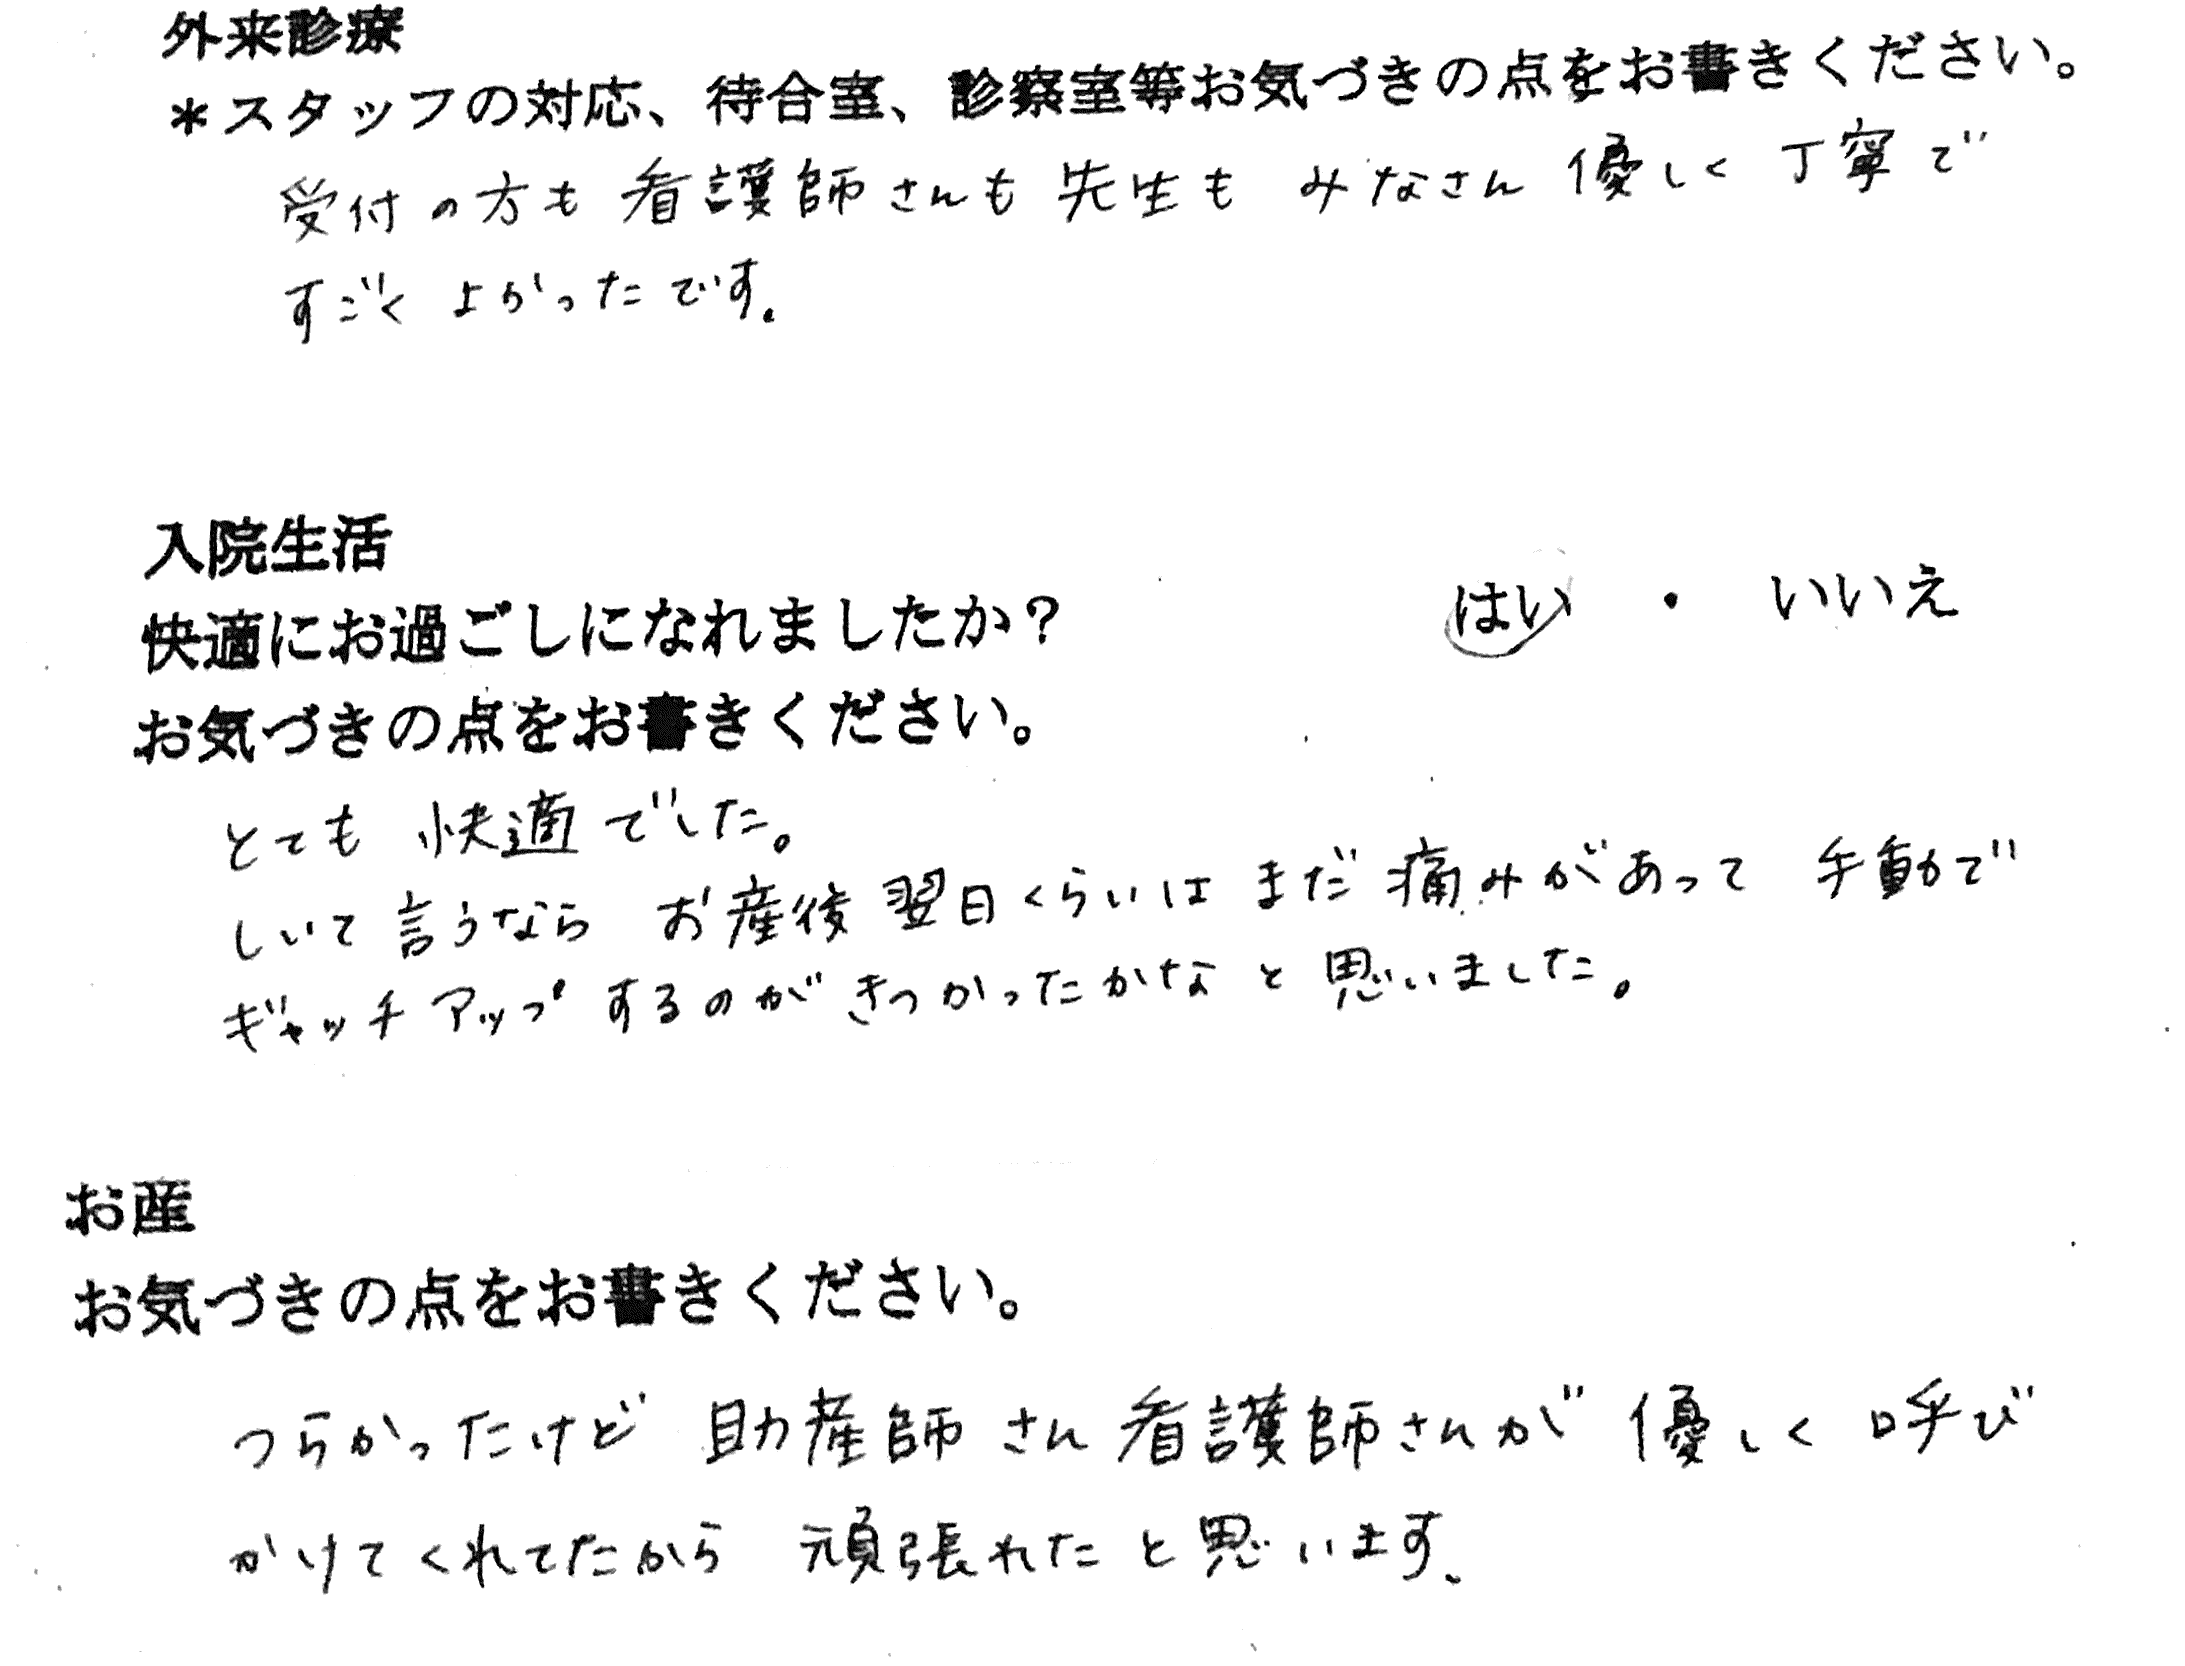 外来診療
＊スタッフの対応、待合室、診察室等お気づきの点をお書きください。
受付の方も看護師さんも先生もみなさん優しく丁寧で
すごくよかったです.
入院生活
快適にお過ごしになれましたか？ はい ・ いいえ
お気づきの点をお書きください。
とても快適でした。
しいて言うならお産後翌日くらいはまだ痛みがあって手動で
ギャッチアップするのがきつかったかなと思いました。
お産
お気づきの点をお書きください。
つらかったけど助産師さん看護師さんが優しく呼び
かけてくれてたから頑張れたと思います.